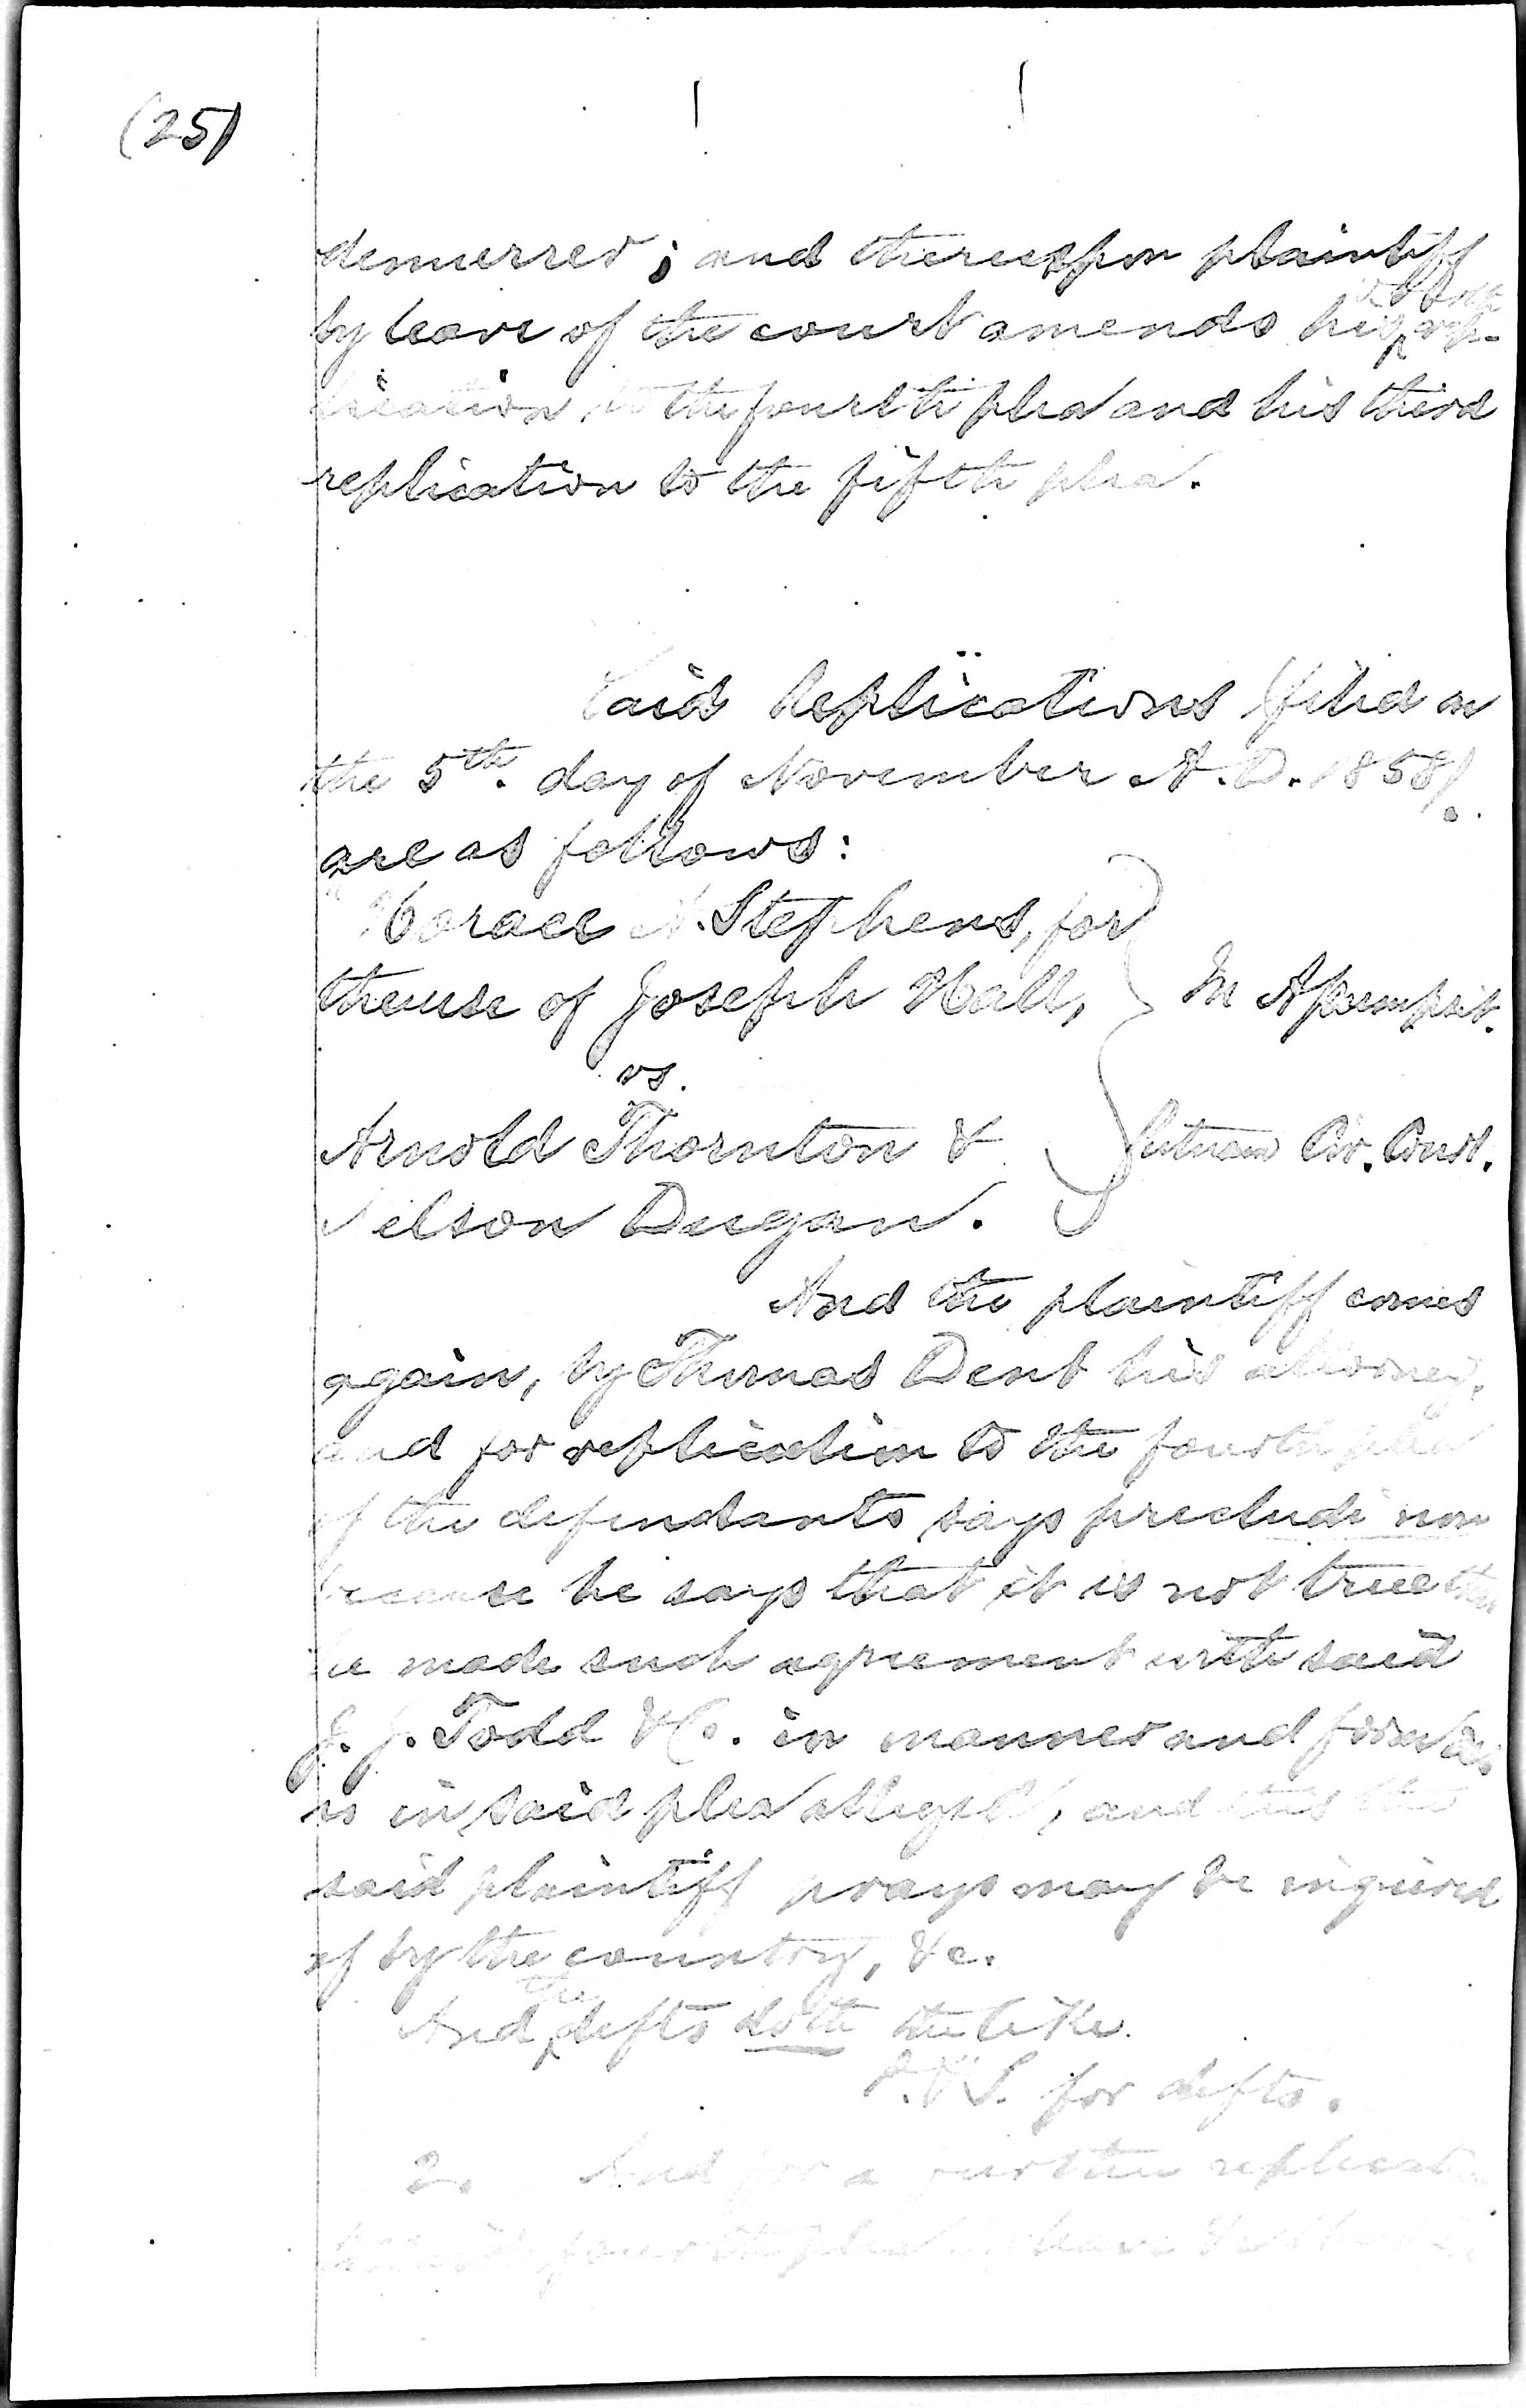 (25)
demurrer; and thereupon plaintiff
by leave of the court amends his rep-
lication to the fourth plea and his third
replication to the fifth plea.
Said Replications (filed on
the 5th. day of November A.D. 1858).
are as follows:
"Horace N. Stephens, for
the use of Joseph Hall,
In Assumpsit.
vs.
Arnold Thornton &
Putnam Cir. Court.
Nelson Dugan.
And the plaintiff comes
again, by Thomas Dent his attorney,
and for replication to the fourth plea
of the defendants says precludi non
because he says that it is not true that
he made such agreement with said
J. J. Todd & Co. in manner and form as
is in said plea alleged, and this the
said plaintiff prays may be inquired
of by the country, &c.
And the defts doth the like.
P. & S. for defts.
2. And for a further replication
fourth plea by leave